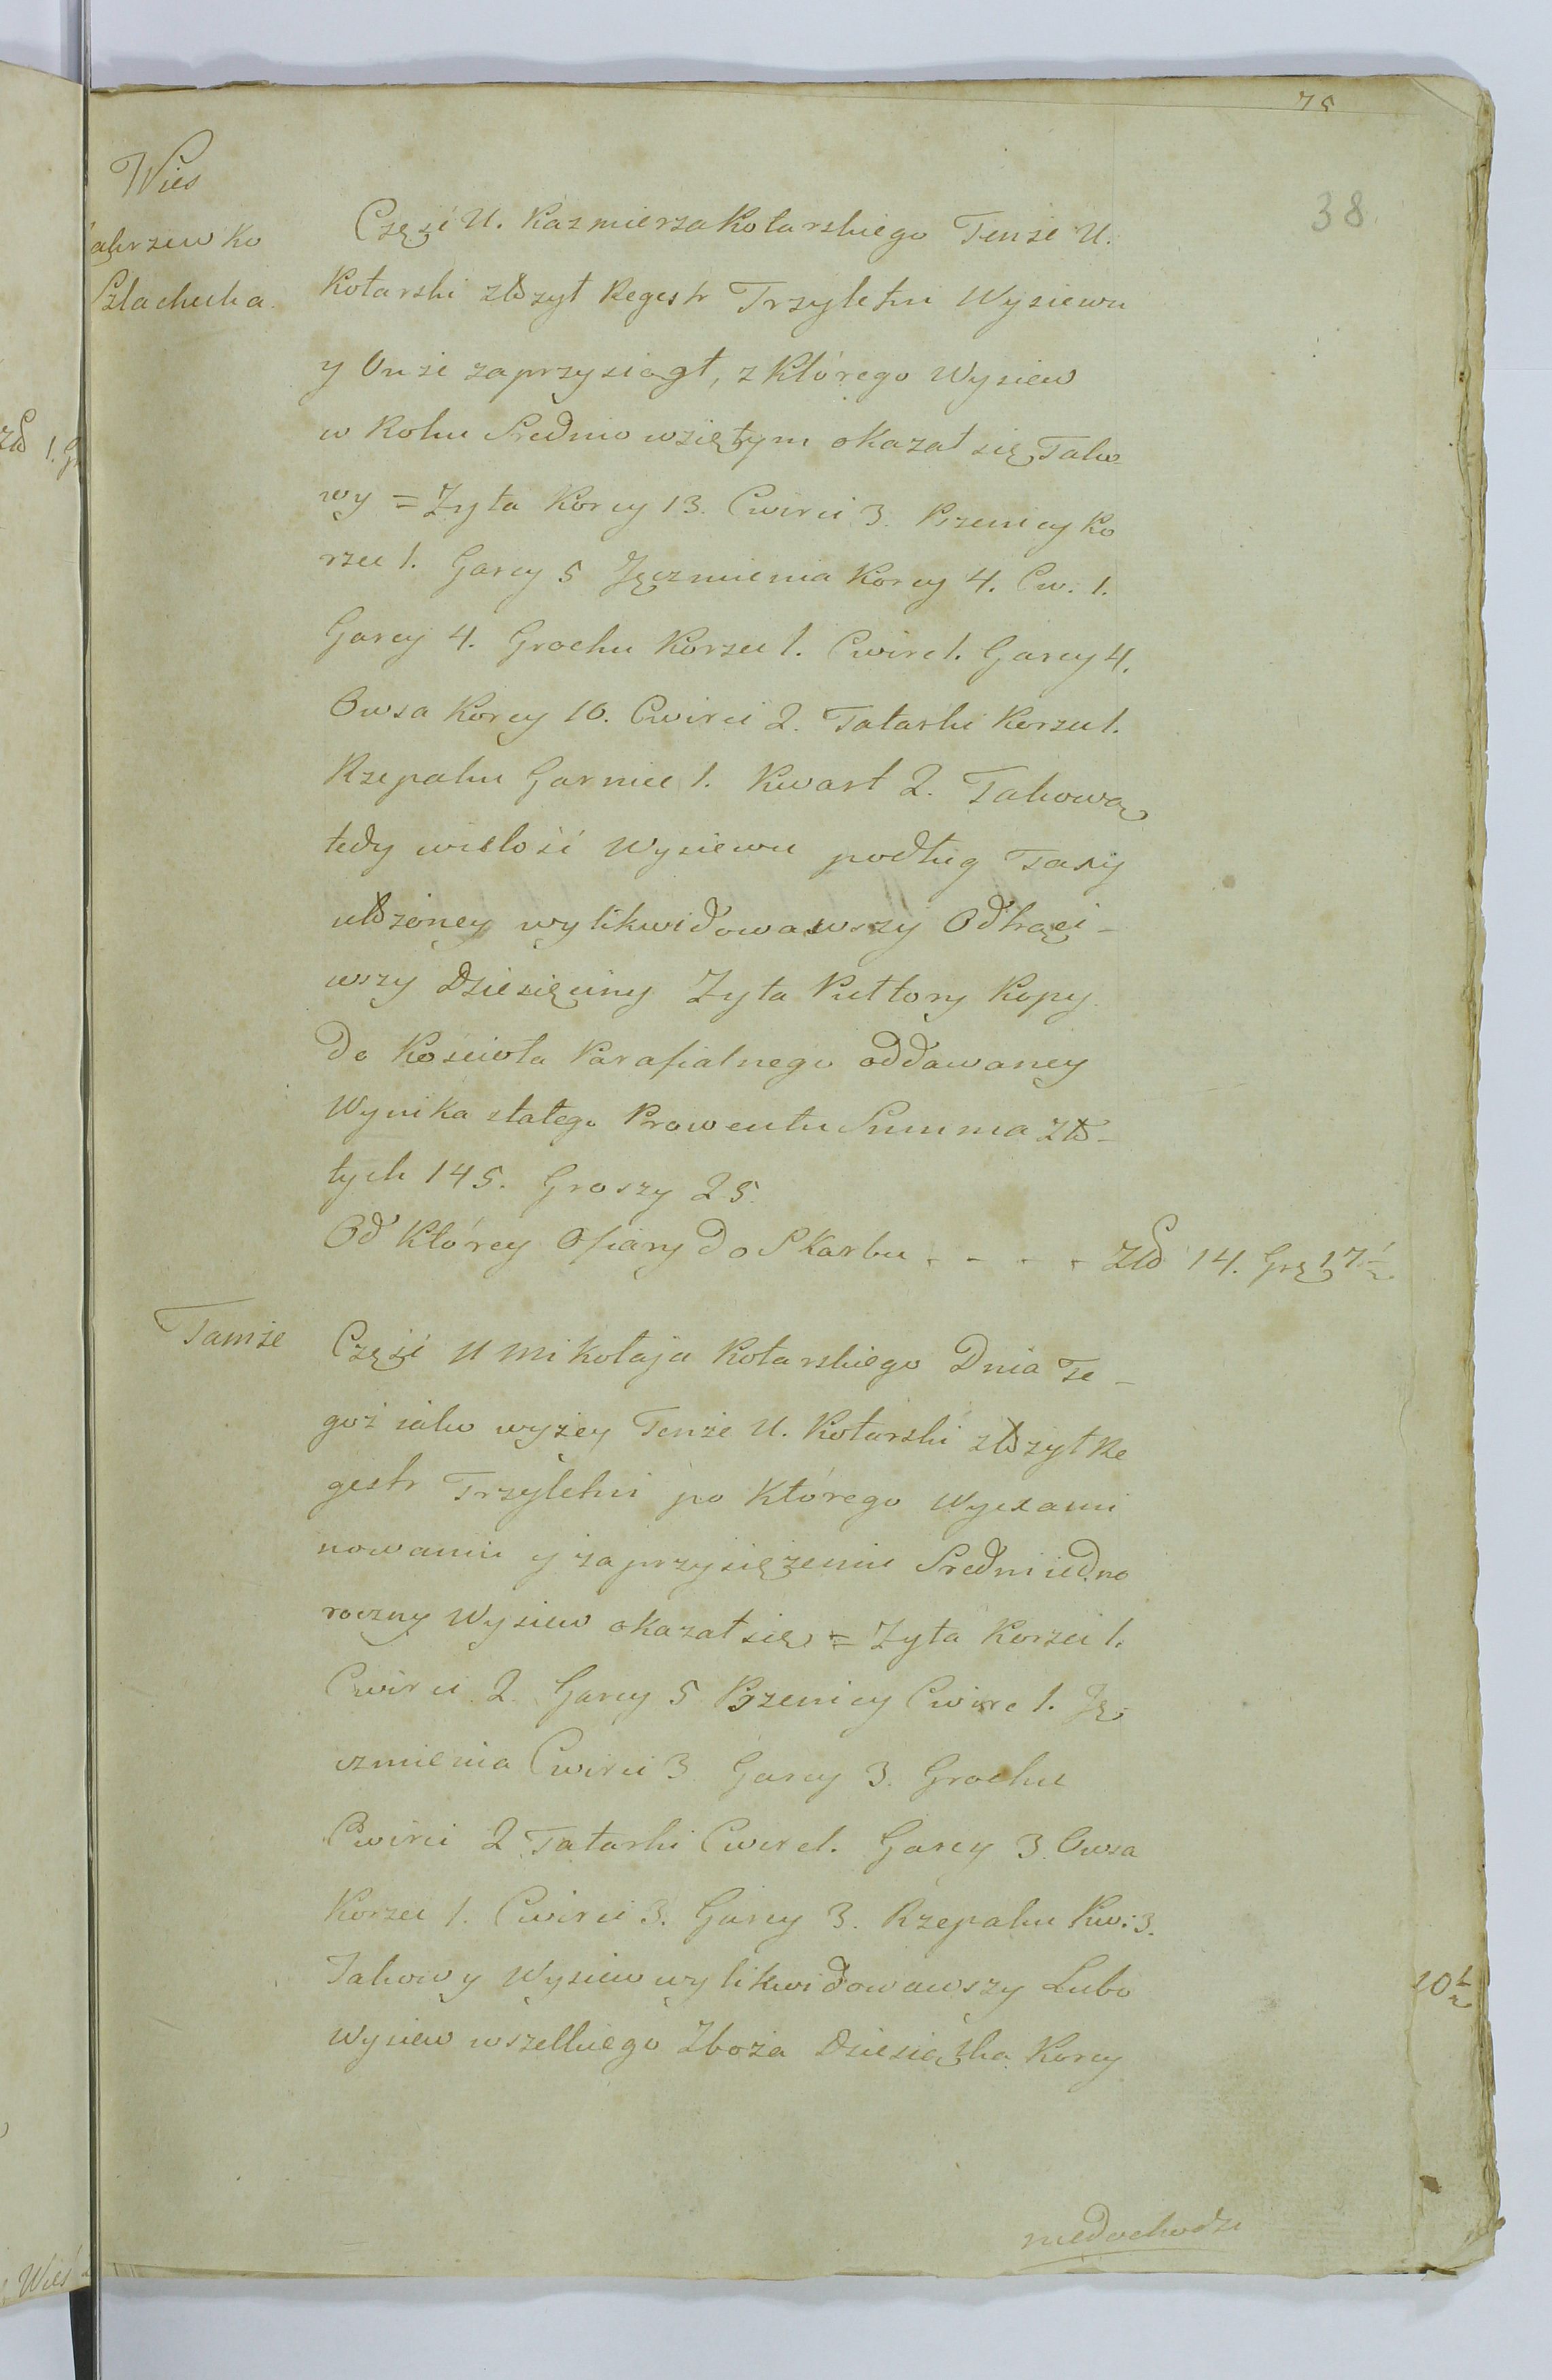 75
38
Wies
Część U. Kazmierza Kotarskiego Tenże U.
Szlachecka
Kotarski złożył Regestr Trzyletni Wysiewu
y Onże zaprzysiągł, z Którego Wysiew
w Roku Srednio wziętym okazał się Tako
wy = Zyta Korcy 13. Cwierci 3. Pszenicy Ko
rzec 1. Garcy 5 Jęczmienia Korcy 4. Cw. 1.
Garcy 4. Grochu Korzec 1. Cwierc 1. Garcy 4.
Owsa Korcy 10. Cwierci 2. Tatarki Korzec 1.
Rzepaku Garniec 1. Kwart 2. Takową
tedy wielość Wysiewu podług Taxy
ułożoney wylikwidowawszy Odtrąci-
wszy Dziesięciny Zyta Pułtory Kopy
do Kościoła Parafialnego oddawaney
Wynika stałego Prowentu Summa Zło-
tych 145. Groszy 25.
Od Którey Ofiary do Skarbu . - . . Zło 14. Gr 17½
Tamże
Część U Mikołaja Kotarskiego Dnia Te-
goż iako wyżey Tenże U. Kotarski złożył Re
gestr Trzyletni po Którego Wyexami
nowaniu y zaprzysiężeniu Sredni iedno
roczny Wysiew okazał się = Zyta Korzec 1.
Cwierci 2. Garcy 5 Pszenicy Cwierc 1. Ję
czmienia Cwierci 3 Garcy 3. Grochu
Cwierci 2 Tatarki Cwierc 1. Garcy 3. Owsa
Korzec 1. Cwierci 3. Garcy 3. Rzepaku Kw: 3.
Takowy Wysiew wylikwidowawszy Lubo
Wysiew wszelkiego Zboża Dziesiątka Korcy
niedochodzi